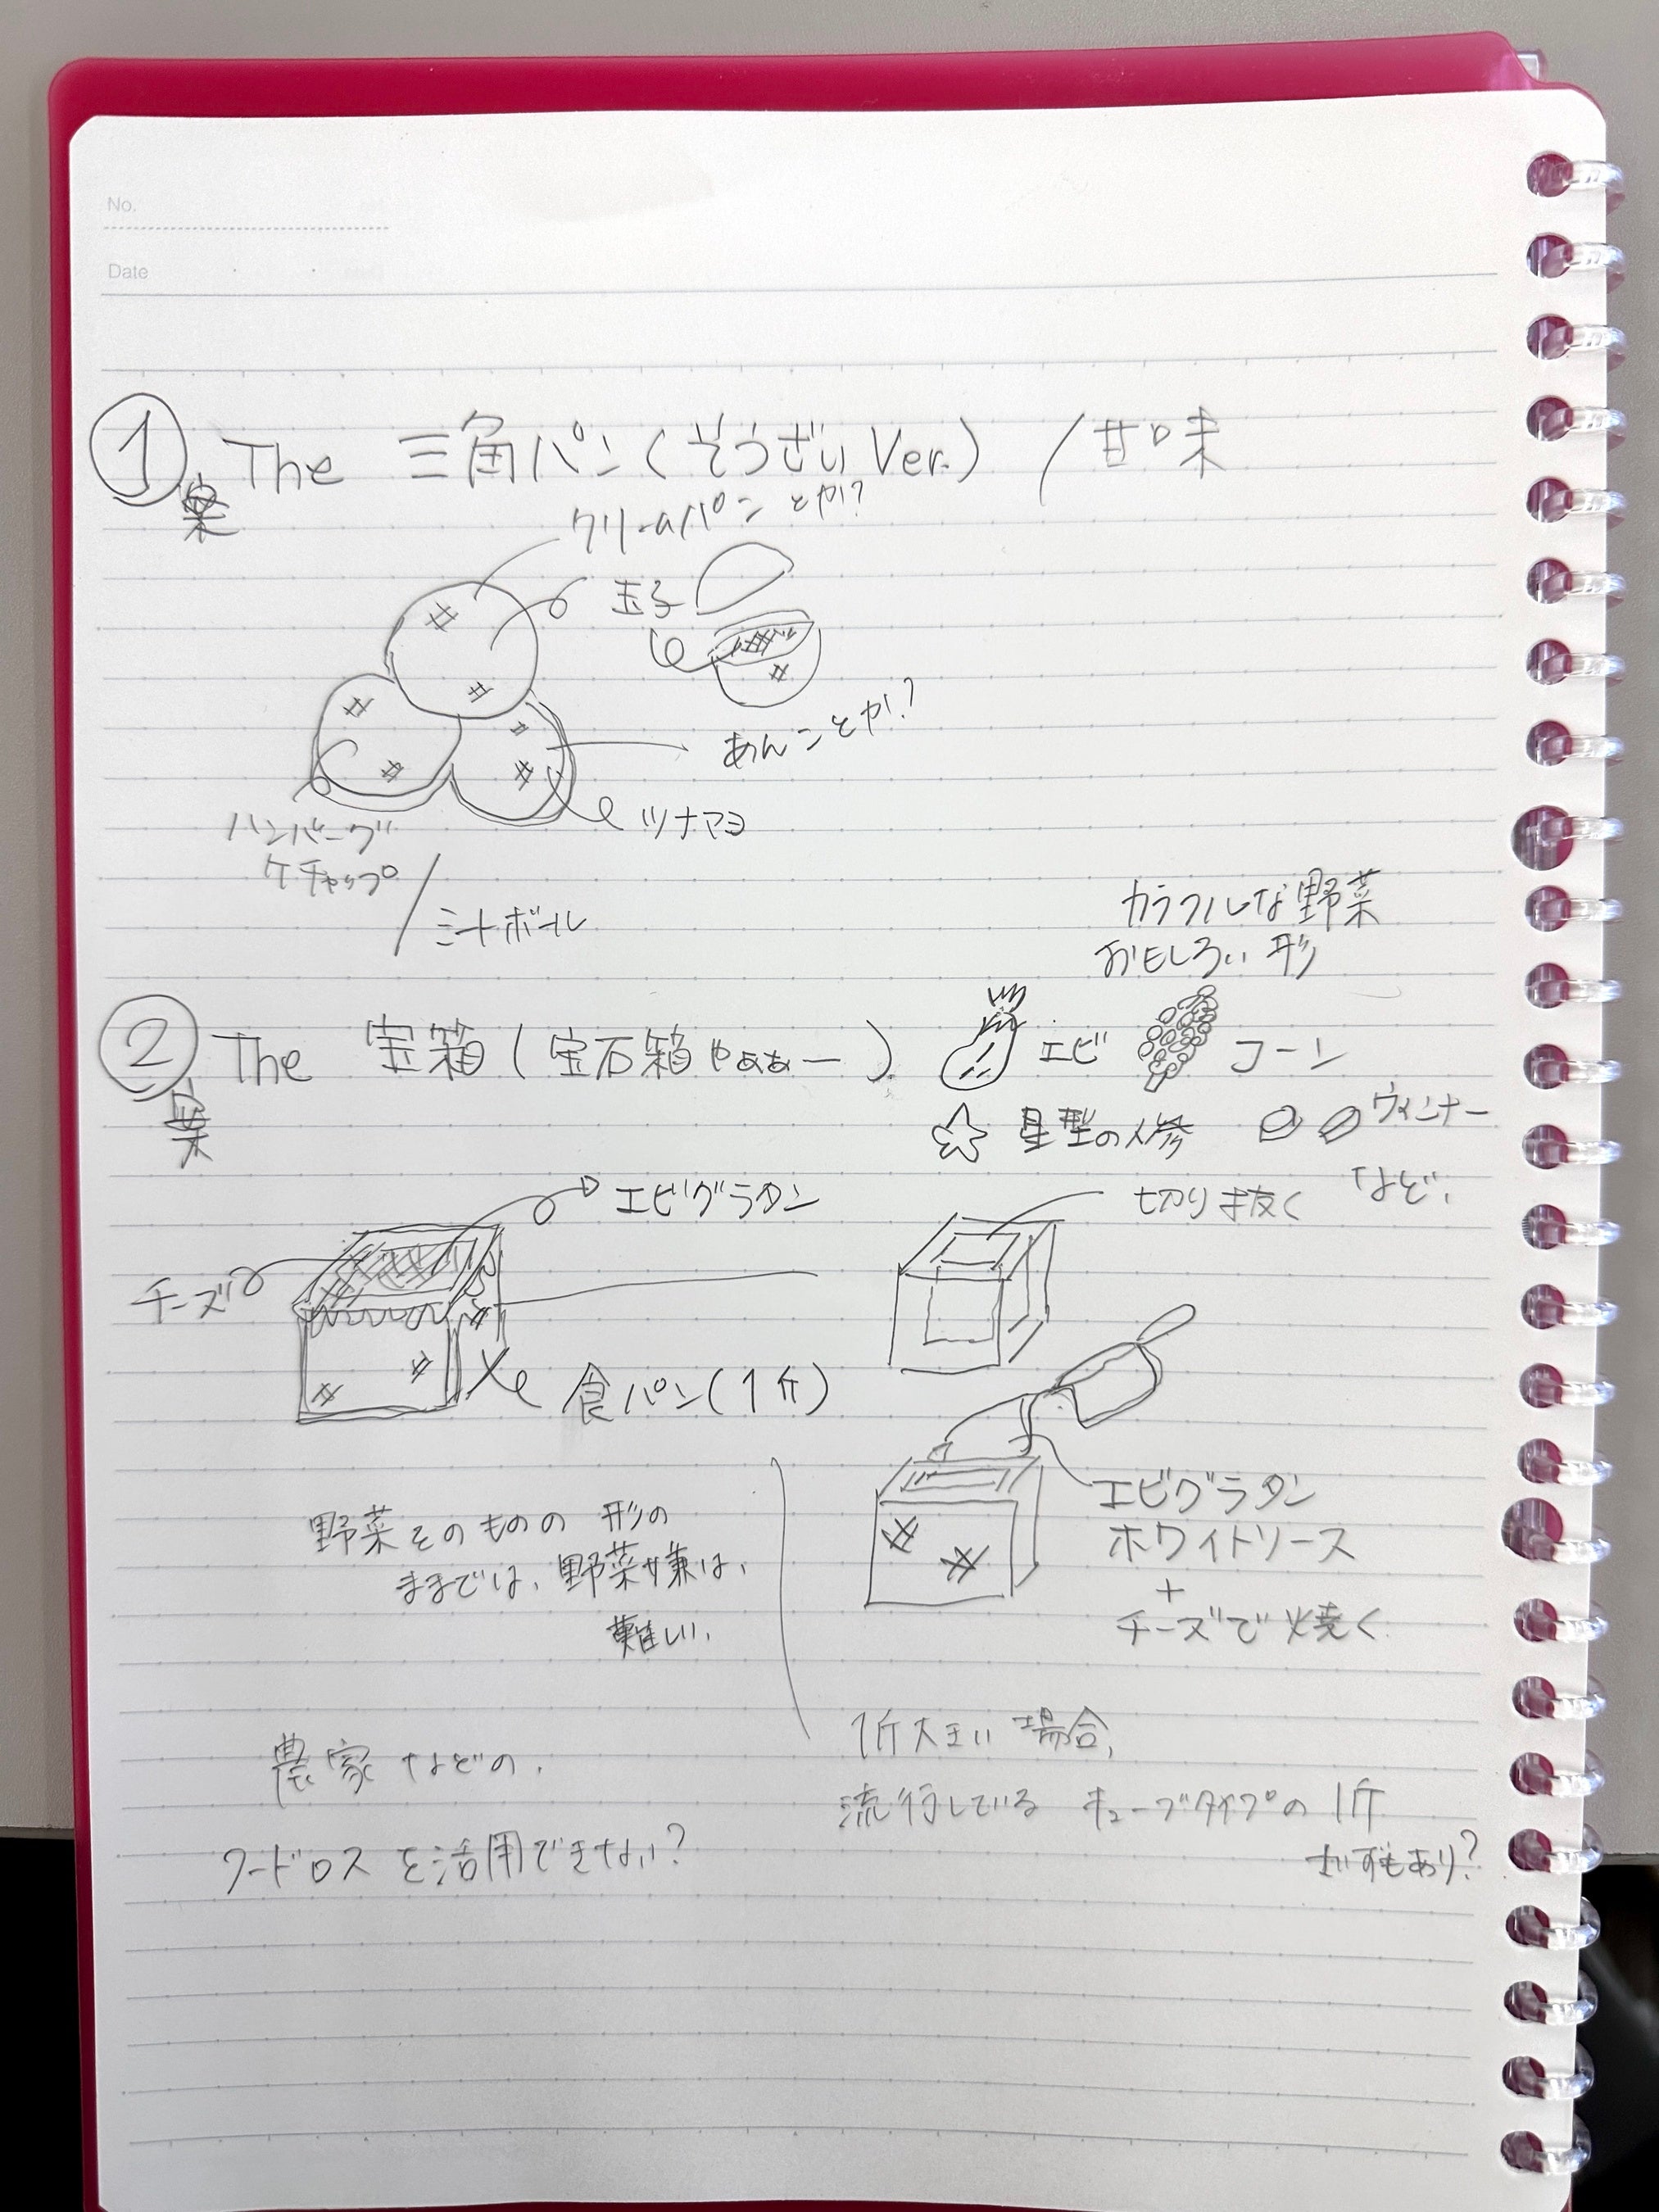 No.
Date
① The 三角パン(そうざいVer.) /甘味
案
クリームパンとか?
玉子
あんことか?
ツナマヨ
ハンバーグ
ケチャップ
/ミートボール
カラフルな野菜
おもしろい形
② The 宝箱(宝石箱やぁぁー)
案
エビ
コーン
星型の人参
ウィンナー
など、
エビグラタン
チーズ
食パン(1斤)
切り抜く
エビグラタン
ホワイトソース
+
チーズで焼く
野菜そのものの形の
ままでは、野菜嫌は、
難しい、
農家などの、
フードロスを活用できない?
1斤大きい場合、
流行している キューブタイプの1斤
さいずもあり?